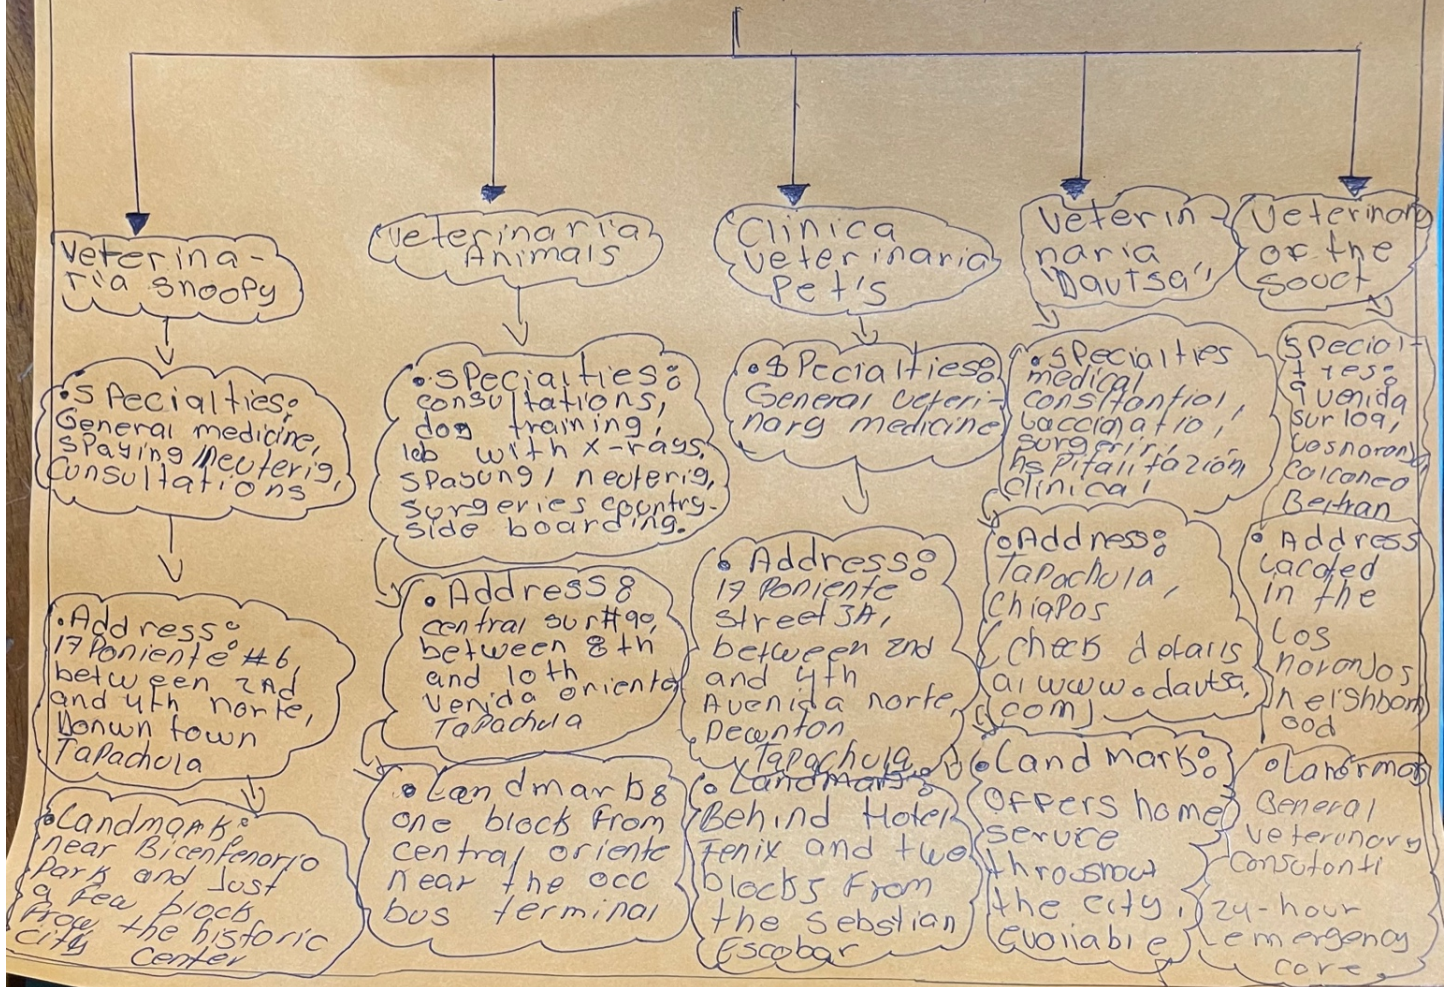 Veterina-
ria Snoopy
• Specialties:
General medicine,
spaying/neuterig,
consultations
• Address:
17 Poniente #6,
between 2nd
and 4th norte,
Donwn town
Tapachula
• Landmark:
near Bicentenario
Park and Just
a few block
From the historic
city center
Veterinaria
Animals
• Specialties:
consultations,
dog training,
lab with x-rays,
spayung/neuterig,
surgeries country-
side boarding.
• Address:
central sur #90,
between 8th
and 10th
venida oriente
Tapachula
• Landmark:
one block from
central oriente
near the occ
bus terminal
Clinica
veterinaria
Pet's
• Specialties:
General veteri-
nary medicine
• Address:
17 Poniente
street 3A,
between 2nd
and 4th
Avenida norte,
Dewnton
Tapachula
• Landmark:
Behind Hotel
Fenix and two
blocks from
the sebstian
Escobar
Veterin-
naria
"Dautsa"
• Specialties
medical
surgerir,
clinical
• Address:
Tapachula,
Chiapas
(check detaris
at www.dautsa.
com)
• Land mark:
OFFers home
seruce
throsnout
the city,
avaiiable
Veterinary
of the
souct
Special-
ties:
avenida
sur 109,
Los noranj
calcaneo
Beltran
• Address
Lacated
in the
Los
noranjos
neishborn
ood
• Lanrmar
General
veterunary
Consutonti
24-hour
emergency
core.